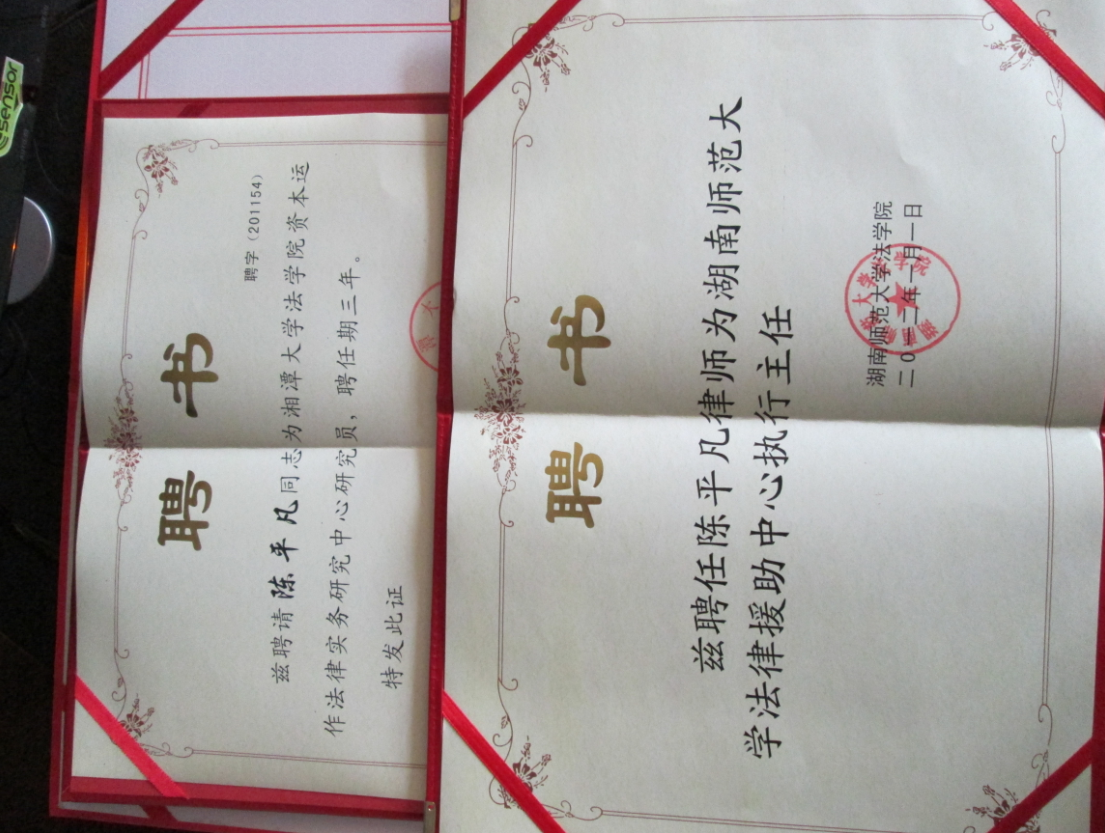 聘 书
聘字（201154）
兹聘请陈平凡同志为湘潭大学法学院资本运
作法律实务研究中心研究员，聘任期三年。
特发此证
聘 书
兹聘任陈平凡律师为湖南师范大
学法律援助中心执行主任
湖南师范大学法学院
二0一二年一月一日
sensor